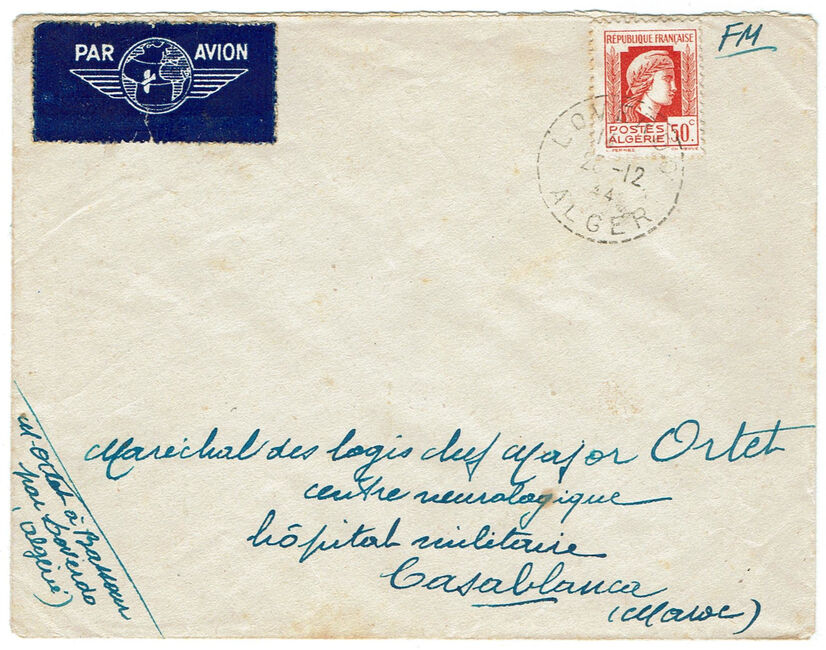 PAR AVION
FM
RÉPUBLIQUE FRANÇAISE
POSTES
ALGÉRIE
50c.
-12
44
ALGER
Maréchal des logis chef Major Ortet
centre neurologique
hôpital militaire
Casablanca
(Maroc)
Ortet à
par Loverdo
(algérie)